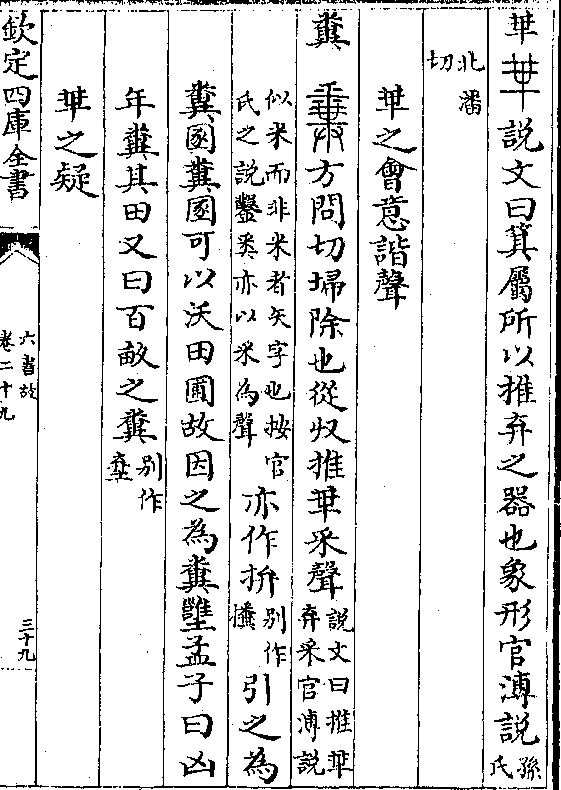 𠦒 說文曰箕屬所以推弃之器也象形官溥說 孫氏
北潘切
𠦒之會意諧聲
糞 方問切埽除也從収推𠦒釆聲 說文曰推𠦒弃釆官溥說
似米而非米者矢字也按官氏之說鑿矣亦以釆為聲 亦作拚 別作 引之為
糞圂糞圂可以沃田圃故因之為糞壅孟子曰凶
年糞其田又曰百畝之糞 別作
𠦒之疑
欽定四庫全書
六書故
卷二十九
三十九